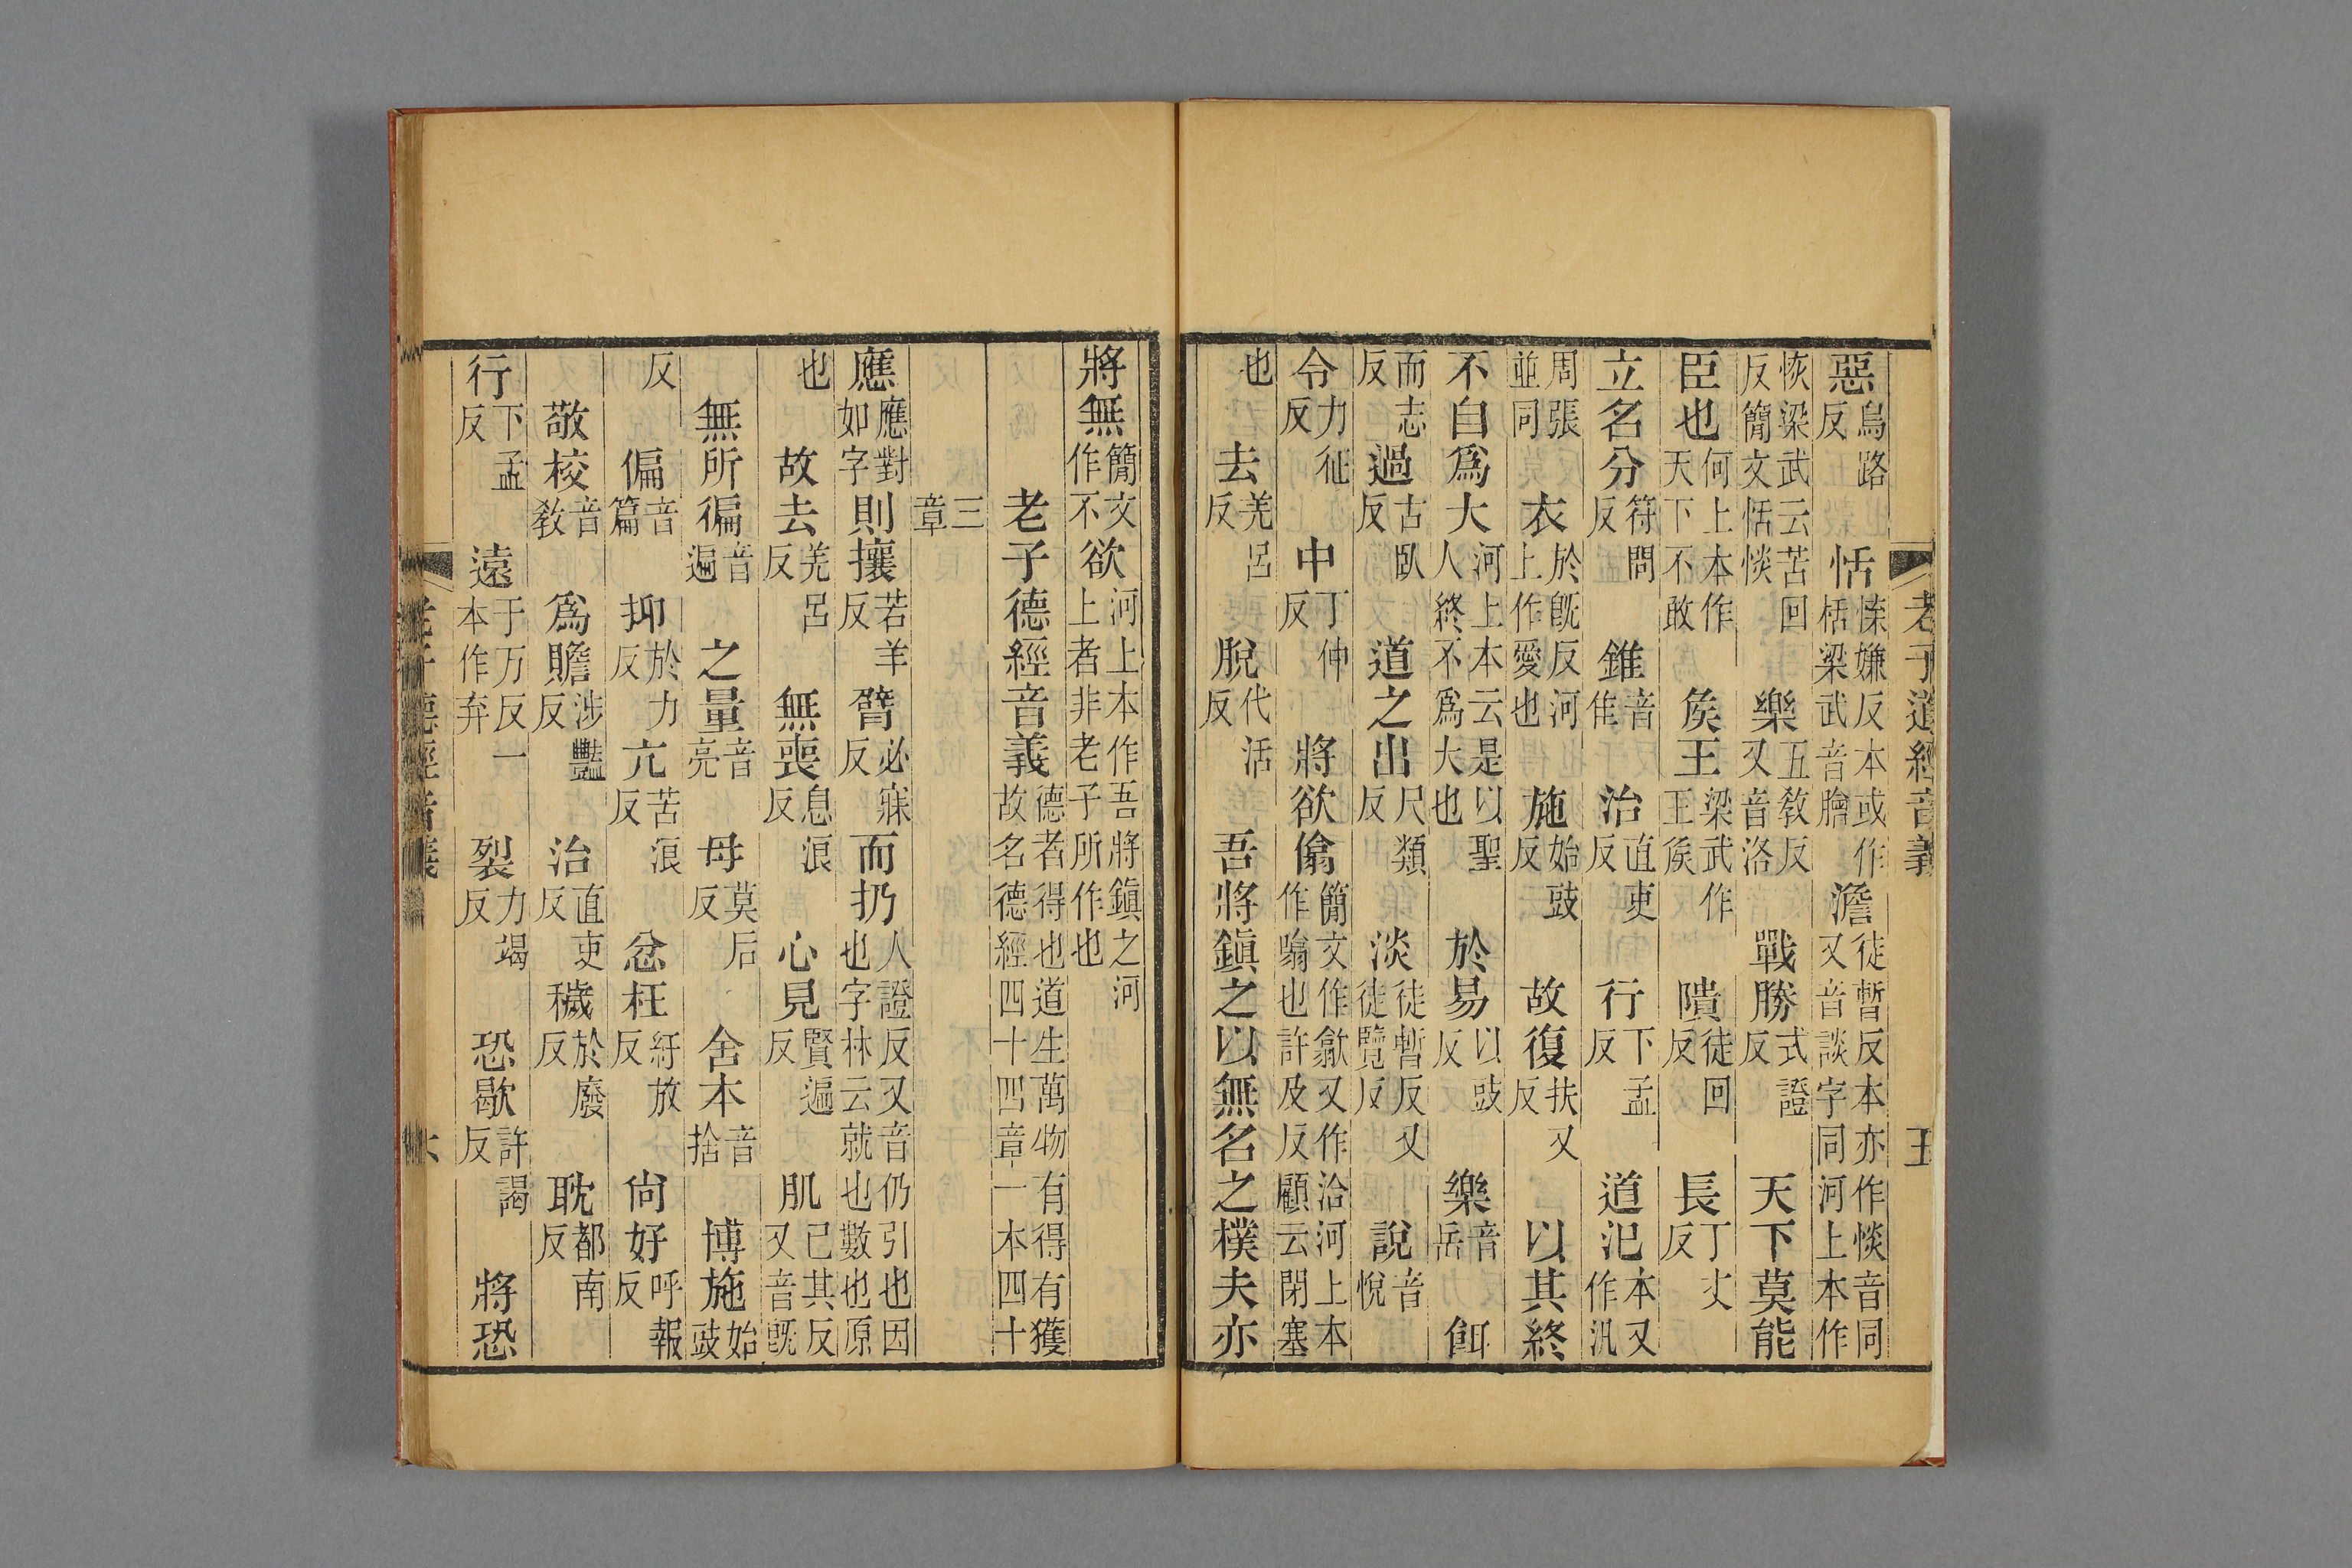 老子道經音義 五
惡烏路反 恬悚嫌反本或作栝梁武音膾 澹徒暫反本亦作惔音同又音談字同河上本作
恢梁武云苦回反簡文恬惔 樂五敎反又音洛 戰勝式證反 天下莫能
臣也何上本作天下不敢 矦王梁武作王矦 隤徒回反 長丁丈反
立名分符問反 錐音隹 治直吏反 行下孟反 道汜本又作汎
周張並同 衣於旣反河上作愛也 施始豉反 故復扶又反 以其終
不自爲大河上本云是以聖人終不爲大也 於易以豉反 樂音岳 餌
而志反 過古臥反 道之出尺類反 淡徒暫反又徒覽反 說音悅
令力征反 中丁仲反 將欲傓簡文作歙又作洽河上本作噏也許及反顧云閉塞
也 去羌呂反 脫代活反 吾將鎮之以無名之樸夫亦
將無簡文作不 欲河上本作吾將鎮之河上者非老子所作也
老子德經音義德者得也道生萬物有得有獲故名德經四十四章一本四十
三章
應應對如字 則攘若羊反 臂必寐反 而扔人證反又音仍引也因也字林云就也數也原
也 故去羌呂反 無喪息浪反 心見賢遍反 肌己其反又音旣
無所徧音遍 之量音亮 母莫后反 舍本音捨 博施始豉
反 偏音篇 抑於力反 亢苦浪反 忿枉紆放反 尙好呼報反
敬校音敎 爲贍涉豔反 治直吏反 穢於廢反 耽都南反
行下孟反 遠于万反一本作弃 裂力竭反 恐歇許謁反 將恐
老子德經音義 六